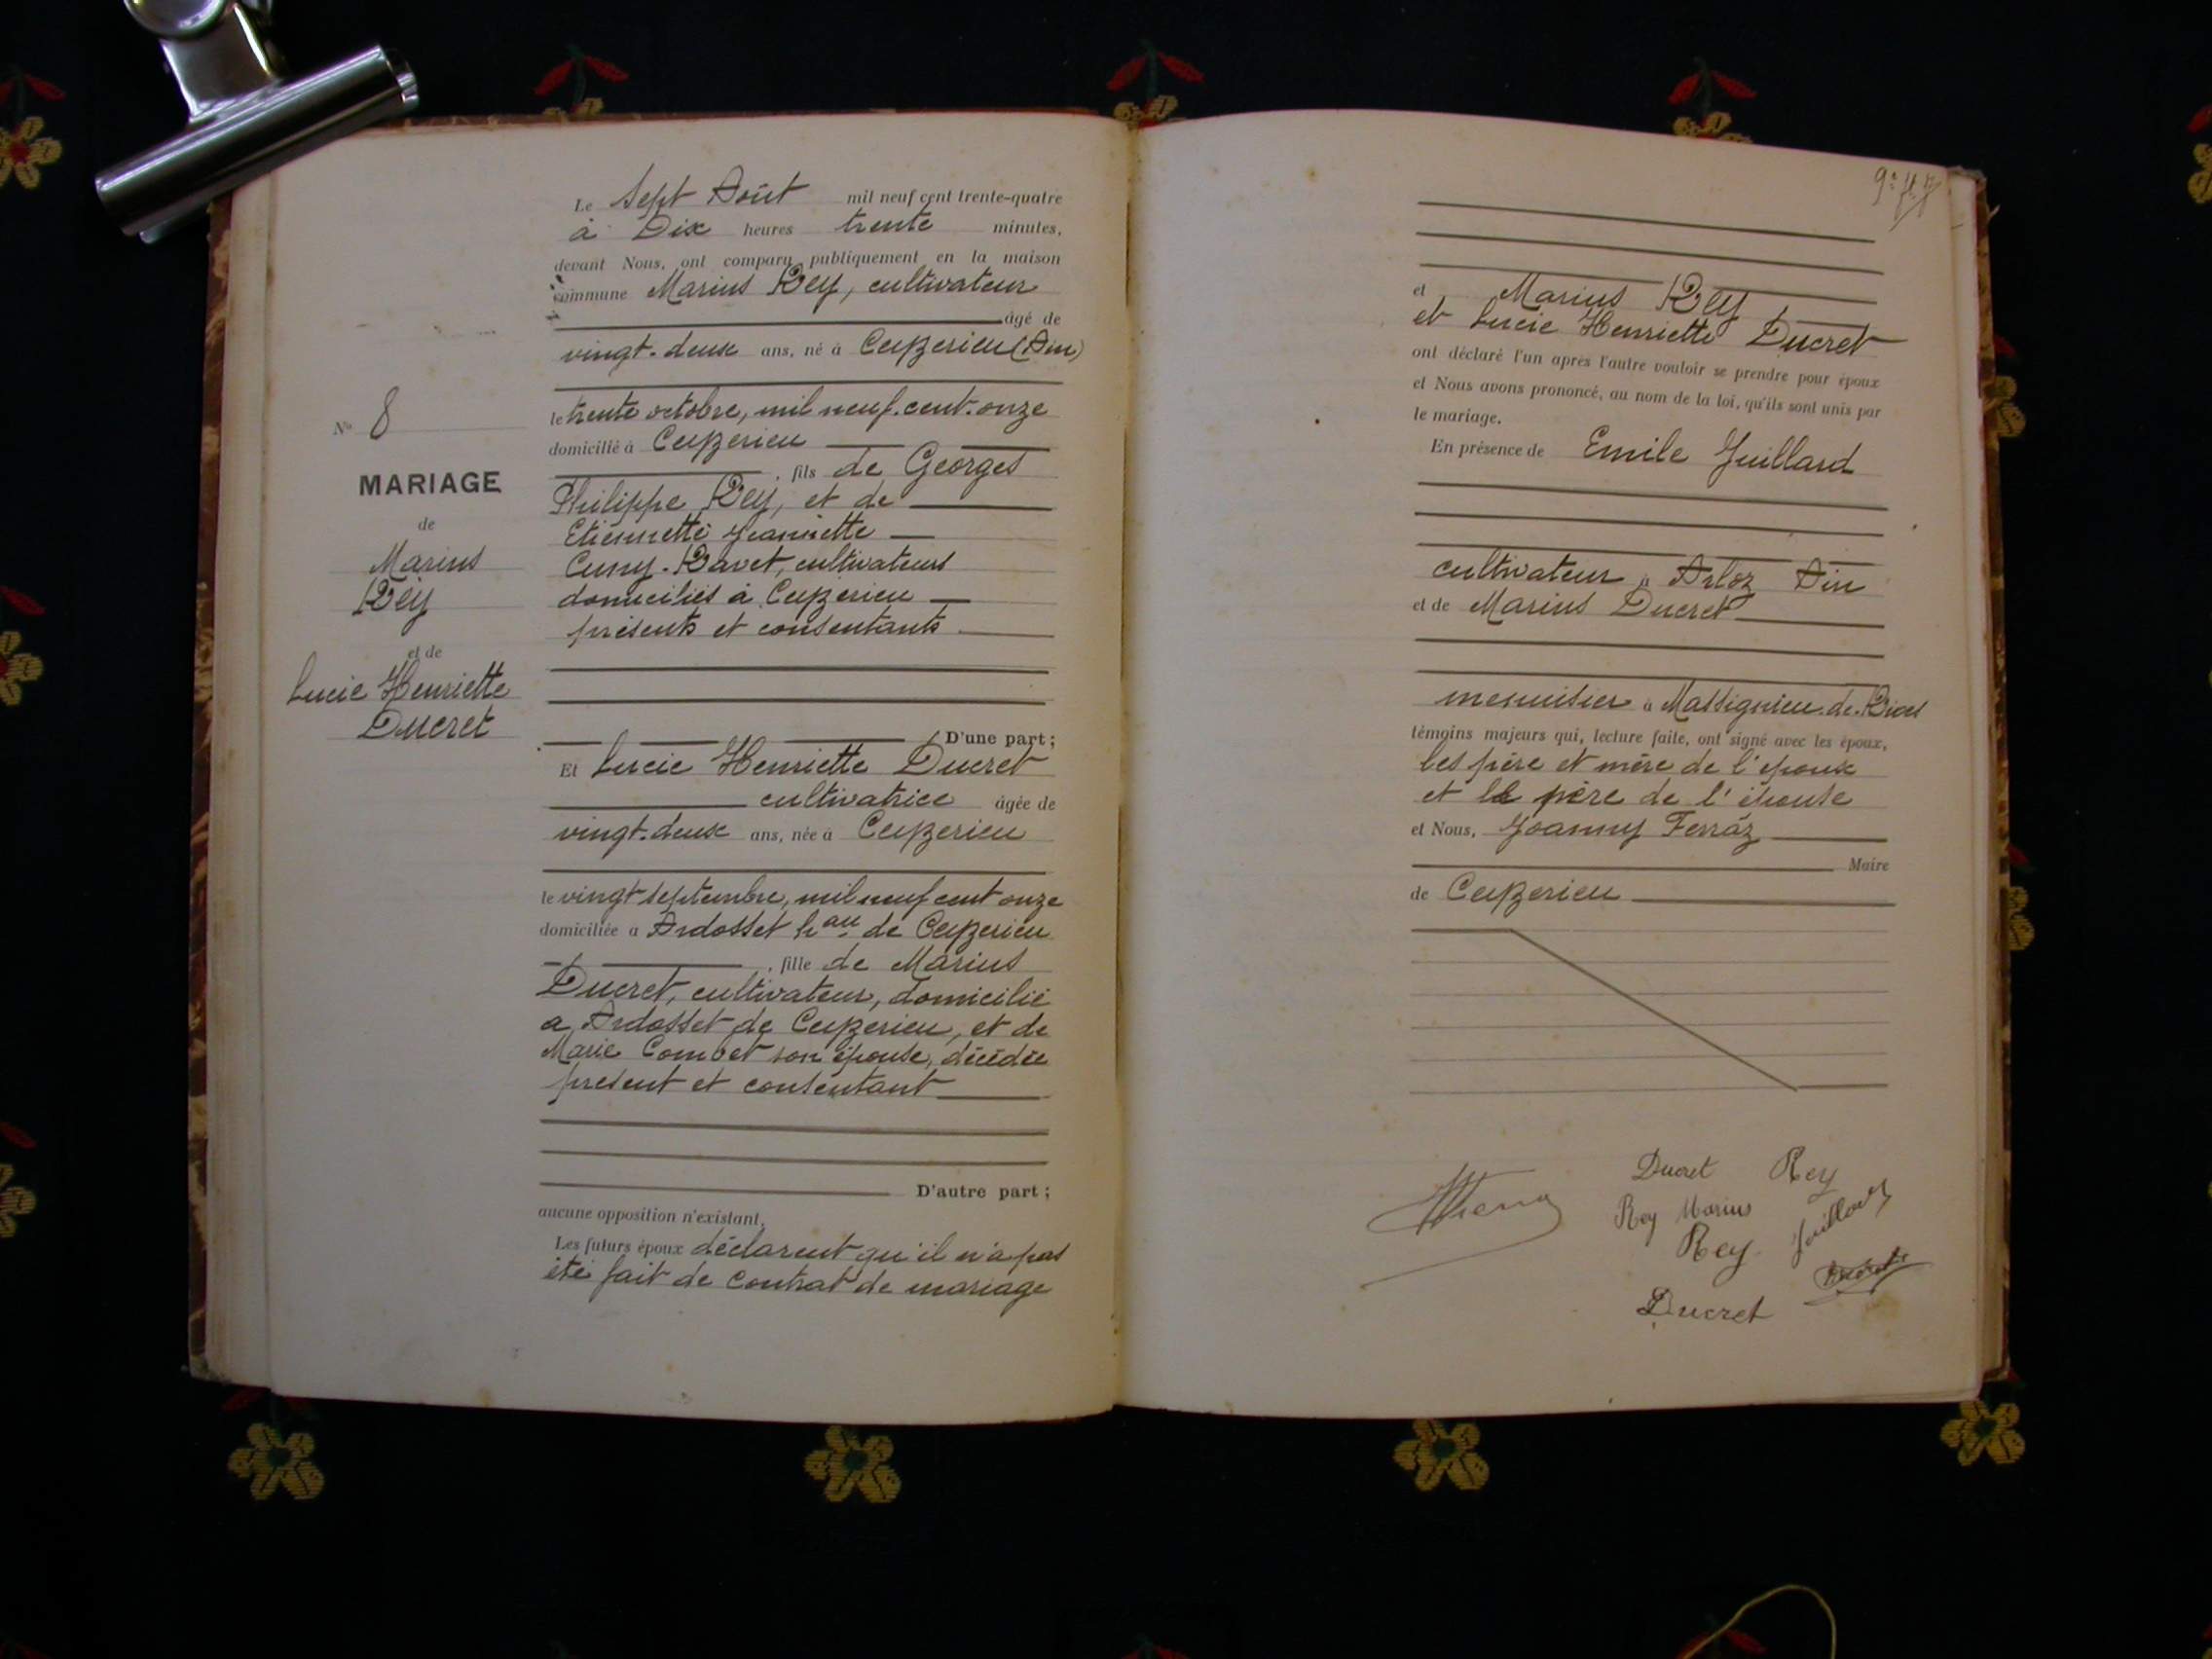 Le Sept Août mil neuf cent trente-quatre
à Dix heures trente minutes,
devant Nous, ont comparu publiquement en la maison
commune Marius Rey, cultivateur
âgé de
vingt-deux ans, né à Ceyzerieu (Ain)
le trente octobre, mil neuf-cent-onze
domicilié à Ceyzerieu
, fils de Georges
Philippe Rey, et de
Etiennette Jeannette
Cuny-Ravet, cultivateurs
domiciliés à Ceyzerieu
présents et consentants
D'une part ;
Et Lucie Henriette Ducret
cultivatrice âgée de
vingt-deux ans, née à Ceyzerieu
le vingt septembre, mil neuf cent onze
domiciliée à Ardosset hau de Ceyzerieu
, fille de Marius
Ducret, cultivateur, domicilié
à Ardosset de Ceyzerieu, et de
Marie Combet son épouse, décédée
présent et consentant
D'autre part ;
aucune opposition n'existant.
Les futurs époux déclarent qu'il n'a pas
été fait de contrat de mariage
No 8
MARIAGE
de
Marius
Rey
et de
Lucie Henriette
Ducret
et Marius Rey
et Lucie Henriette Ducret
ont déclaré l'un après l'autre vouloir se prendre pour époux
et Nous avons prononcé, au nom de la loi, qu'ils sont unis par
le mariage.
En présence de Emile Juillard
cultivateur à Arloz Ain
et de Marius Ducret
menuisier à Massignieu-de-Rives
témoins majeurs qui, lecture faite, ont signé avec les époux,
les père et mère de l'époux
et le père de l'épouse
et Nous, Joanny Ferraz
Maire
de Ceyzerieu
Ducret Rey
Rey Marius Juillard
Rey
Ducret